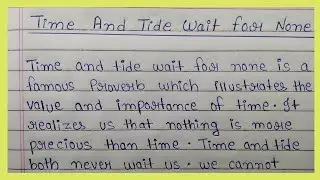 Time And Tide Wait for None
Time and tide wait for none is a
famous Proverb which illustrates the
value and importance of time. It
realizes us that nothing is more
precious than time. Time and tide
both never wait us. we cannot